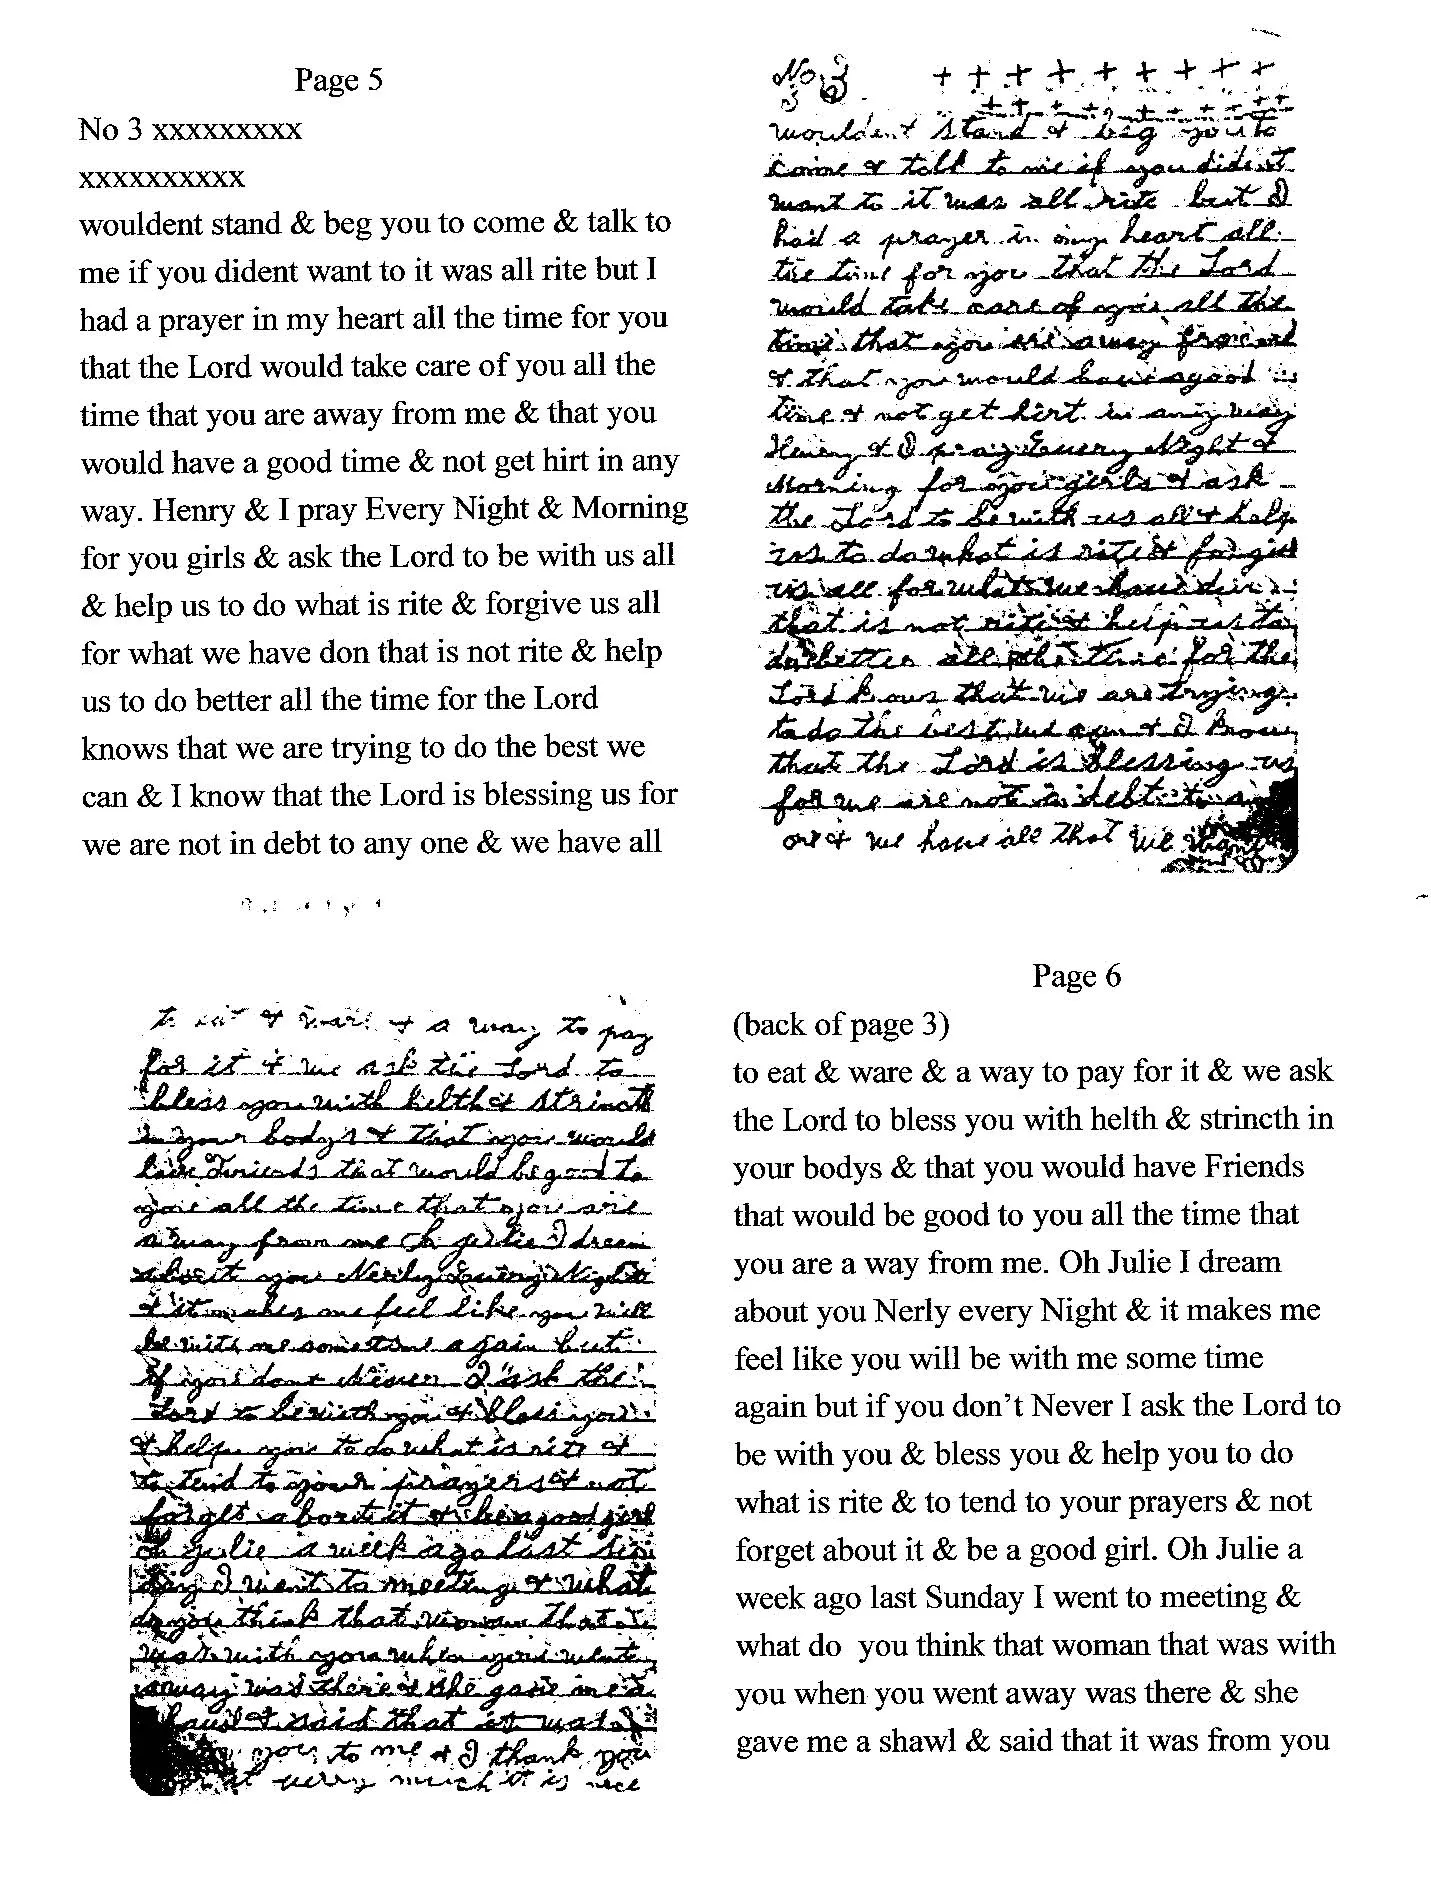 Page 5
No 3 xxxxxxxxx
xxxxxxxxxx
wouldent stand & beg you to come & talk to
me if you dident want to it was all rite but I
had a prayer in my heart all the time for you
that the Lord would take care of you all the
time that you are away from me & that you
would have a good time & not get hirt in any
way. Henry & I pray Every Night & Morning
for you girls & ask the Lord to be with us all
& help us to do what is rite & forgive us all
for what we have don that is not rite & help
us to do better all the time for the Lord
knows that we are trying to do the best we
can & I know that the Lord is blessing us for
we are not in debt to any one & we have all
No 3
3
+ + + + + + + + +
+ + + + + + + + + +
wouldent stand & beg you to
come & talk to me if you dident
want to it was all rite but I
had a prayer in my heart all
the time for you that the Lord
would take care of you all the
time that you are away from me
& that you would have a good
time & not get hirt in any way
Henry & I pray Every Night &
Morning for you girls & ask
the Lord to be with us all & help
us to do what is rite & forgive
us all for what we have don
that is not rite & help us to
do better all the time for the
Lord knows that we are trying
to do the best we can & I know
that the Lord is blessing us
for we are not in debt to any
one & we have all that we want
to eat & ware & a way to pay
for it & we ask the Lord to
bless you with helth & strincth
in your bodys & that you would
have Friends that would be good to
you all the time that you are
a way from me Oh Julie I dream
about you Nerly Every Night
& it makes me feel like you will
be with me some time again but
if you dont Never I ask the
Lord to be with you & bless you
& help you to do what is rite &
to tend to your prayers & not
forget about it & be a good girl
Oh Julie a week ago last Sun
day I went to meeting & what
do you think that woman that
was with you when you went
away was there & she gave me a
shawl & said that it was
from you to me & I thank you
for it very much it is nice
Page 6
(back of page 3)
to eat & ware & a way to pay for it & we ask
the Lord to bless you with helth & strincth in
your bodys & that you would have Friends
that would be good to you all the time that
you are a way from me. Oh Julie I dream
about you Nerly every Night & it makes me
feel like you will be with me some time
again but if you don't Never I ask the Lord to
be with you & bless you & help you to do
what is rite & to tend to your prayers & not
forget about it & be a good girl. Oh Julie a
week ago last Sunday I went to meeting &
what do you think that woman that was with
you when you went away was there & she
gave me a shawl & said that it was from you